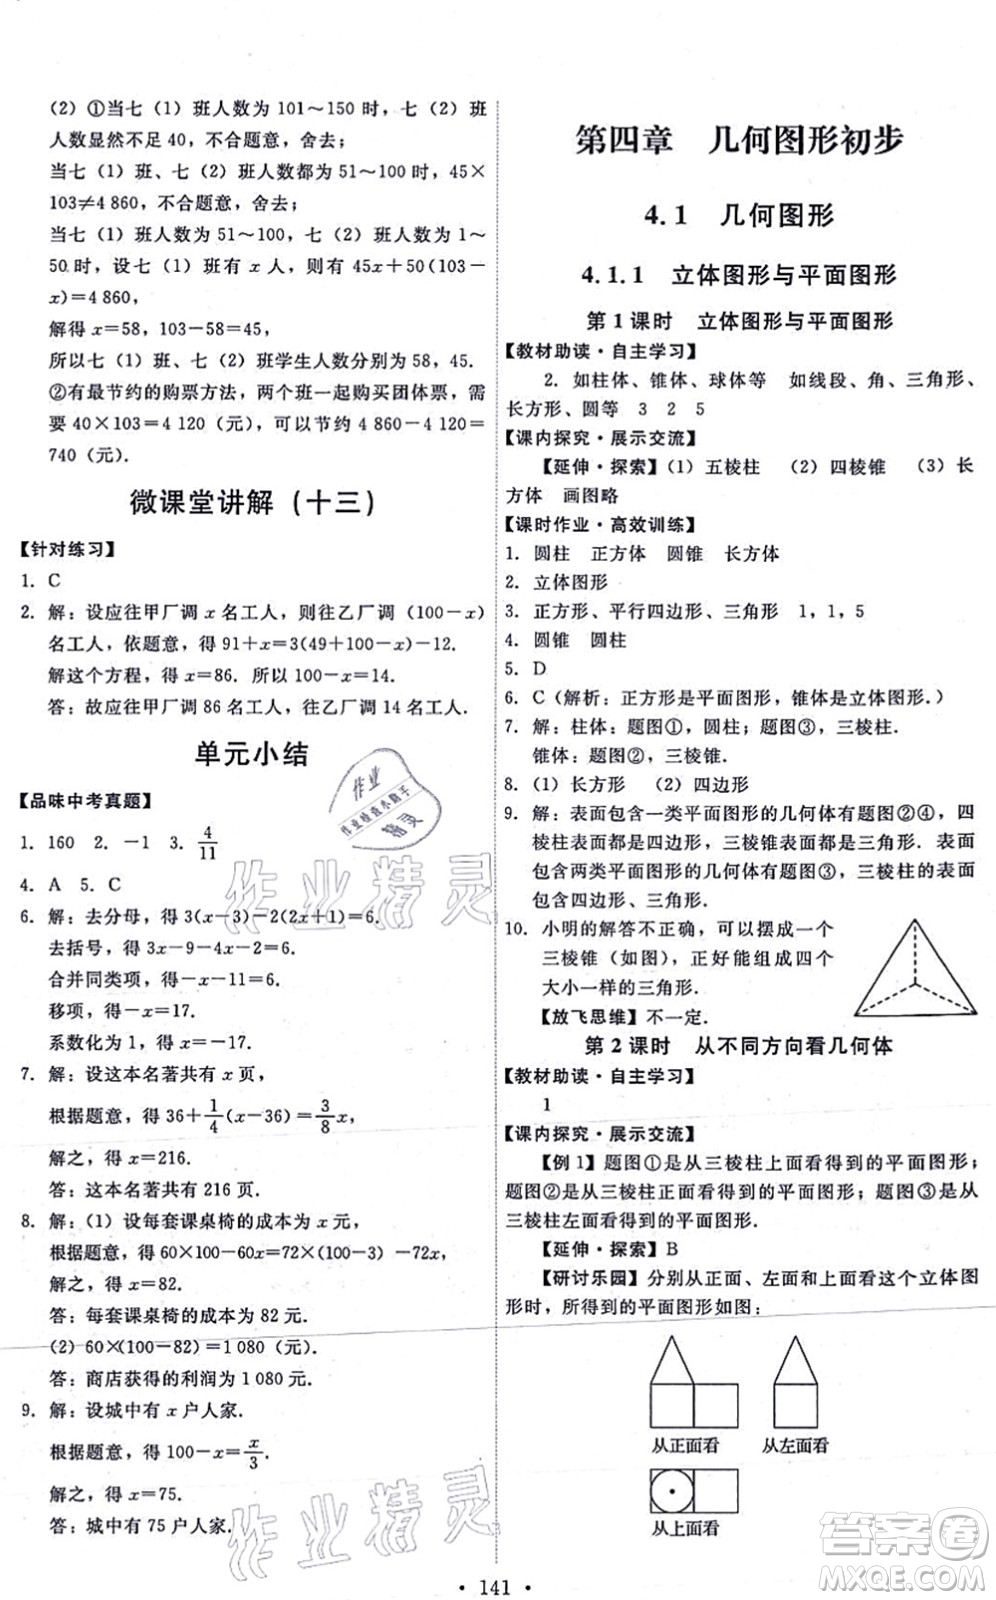 (2) ①当七(1)班人数为101～150时,七(2)班
人数显然不足40,不合题意,舍去;
当七(1)班、七(2)班人数都为51～100时,45×
103≠4 860,不合题意,舍去;
当七(1)班人数为51～100,七(2)班人数为1～
50时,设七(1)班有x人,则有45x+50(103-
x)=4 860,
解得x=58,103-58=45,
所以七(1)班、七(2)班学生人数分别为58,45.
②有最节约的购票方法,两个班一起购买团体票,需
要40×103=4 120(元).可以节约4 860-4 120=
740(元).
微课堂讲解(十三)
【针对练习】
1. C
2. 解:设应往甲厂调x名工人,则往乙厂调(100-x)
名工人,依题意,得91+x=3(49+100-x)-12.
解这个方程,得x=86. 所以100-x=14.
答:故应往甲厂调86名工人,往乙厂调14名工人.
单元小结
【品味中考真题】
1. 160 2. -1 3. 4/11
4. A 5. C
6. 解:去分母,得3(x-3)-2(2x+1)=6.
去括号,得3x-9-4x-2=6.
合并同类项,得-x-11=6.
移项,得-x=17.
系数化为1,得x=-17.
7. 解:设这本名著共有x页,
根据题意,得36+1/4(x-36)=3/8x,
解之,得x=216.
答:这本名著共有216页.
8. 解:(1)设每套课桌椅的成本为x元,
根据题意,得60×100-60x=72×(100-3)-72x,
解之,得x=82.
答:每套课桌椅的成本为82元.
(2)60×(100-82)=1 080(元).
答:商店获得的利润为1 080元.
9. 解:设城中有x户人家.
根据题意,得100-x=x/3.
解之,得x=75.
答:城中有75户人家.
第四章 几何图形初步
4.1 几何图形
4.1.1 立体图形与平面图形
第1课时 立体图形与平面图形
【教材助读·自主学习】
2. 如柱体、锥体、球体等 如线段、角、三角形、
长方形、圆等 3 2 5
【课内探究·展示交流】
【延伸·探索】(1)五棱柱 (2)四棱锥 (3)长
方体 画图略
【课时作业·高效训练】
1. 圆柱 正方体 圆锥 长方体
2. 立体图形
3. 正方形、平行四边形、三角形 1,1,5
4. 圆锥 圆柱
5. D
6. C(解析:正方形是平面图形,锥体是立体图形.)
7. 解:柱体:题图①,圆柱;题图③,三棱柱.
锥体:题图②,三棱锥.
8. (1)长方形 (2)四边形
9. 解:表面包含一类平面图形的几何体有题图②④,四
棱柱表面都是四边形,三棱锥表面都是三角形.表面
包含两类平面图形的几何体有题图①③,表面都包
含四边形、三角形.
10. 小明的解答不正确,可以摆成一个
三棱锥(如图),正好能组成四个
大小一样的三角形.
【放飞思维】不一定.
第2课时 从不同方向看几何体
【教材助读·自主学习】
1
【课内探究·展示交流】
【例1】题图①是从三棱柱上面看得到的平面图形;
题图②是从三棱柱正面看得到的平面图形;题图③是从
三棱柱左面看得到的平面图形.
【延伸·探索】B
【研讨乐园】分别从正面、左面和上面看这个立体图
形时,所得到的平面图形如图:
从正面看 从左面看
从上面看
• 141 •
作业
作业检查小助手
精灵
作业精灵
作业精灵
答案圈
MXQE.COM